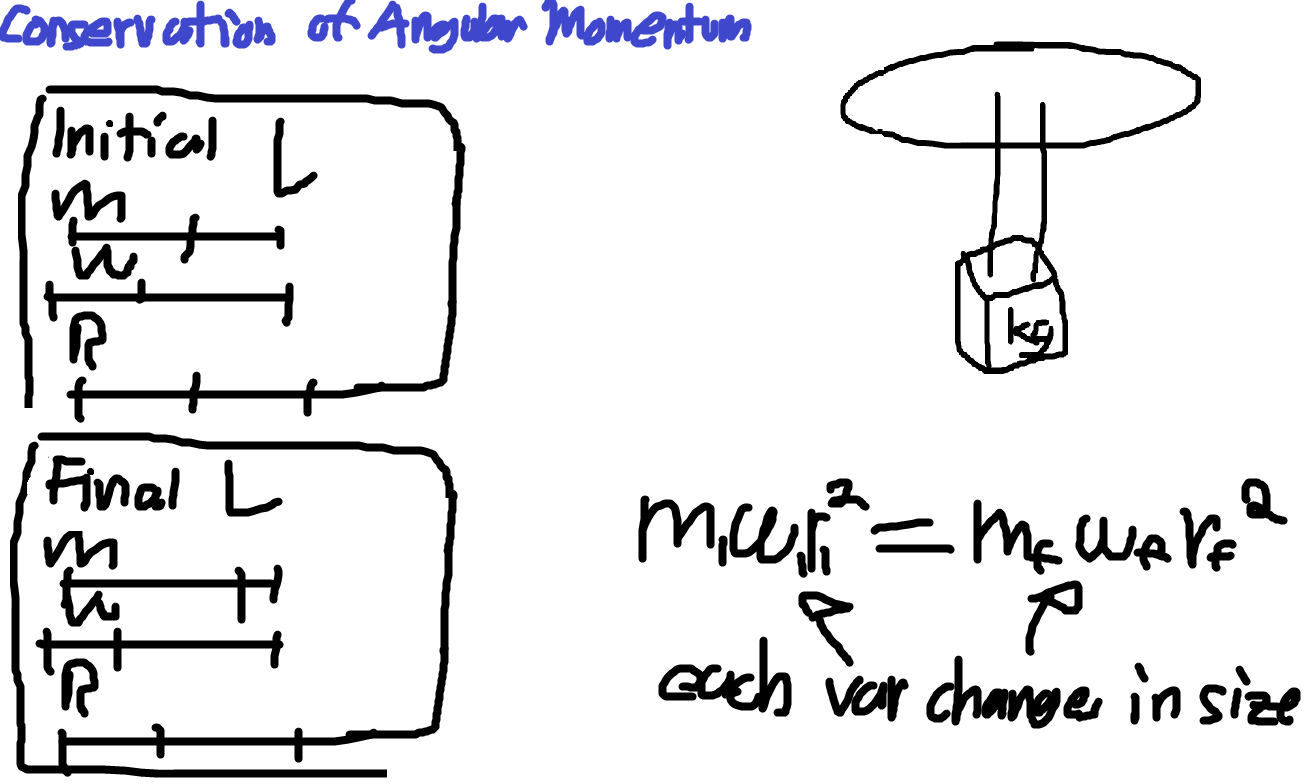 Conservation of Angular Momentum
Initial L
m
w
R
kg
Final L
m
w
R
mᵢωᵢrᵢ² = m_f ω_f r_f²
each var change in size